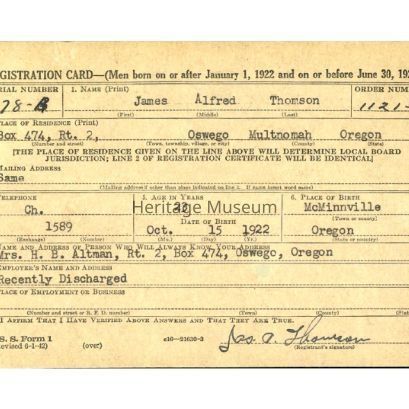 GISTRATION CARD—(Men born on or after January 1, 1922 and on or before June 30, 192
RIAL NUMBER 1. NAME (Print) ORDER NUM
78- James Alfred Thomson 1121-
(First) (Middle) (Last)
PLACE OF RESIDENCE (Print)
Box 474, Rt. 2, Oswego Multnomah Oregon
(Number and street) (Town, township, village, or city) (County) (State)
[THE PLACE OF RESIDENCE GIVEN ON THE LINE ABOVE WILL DETERMINE LOCAL BOARD
JURISDICTION; LINE 2 OF REGISTRATION CERTIFICATE WILL BE IDENTICAL]
MAILING ADDRESS
Same
(Mailing address if other than place indicated on line 2. If same insert word same)
TELEPHONE 5. AGE IN YEARS 6. PLACE OF BIRTH
Ch. McMinnville
Heritage Museum
DATE OF BIRTH (Town or county)
1589 Oct. 15 1922 Oregon
(Exchange) (Number) (Mo.) (Day) (Yr.) (State or country)
NAME AND ADDRESS OF PERSON WHO WILL ALWAYS KNOW YOUR ADDRESS
Mrs. H. B. Altman, Rt. 2, Box 474, Oswego, Oregon
EMPLOYER'S NAME AND ADDRESS
Recently Discharged
PLACE OF EMPLOYMENT OR BUSINESS
(Number and street or R. F. D. number) (Town) (County) (State)
I AFFIRM THAT I HAVE VERIFIED ABOVE ANSWERS AND THAT THEY ARE TRUE.
S. S. Form 1
evised 6-1-42) (over) c16—21630-2 Jas A. Thomson
(Registrant's signature)